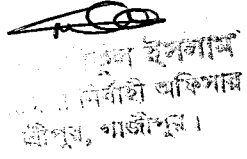 ইসলাম
নির্বাহী অফিসার
শ্রীপুর, গাজীপুর।